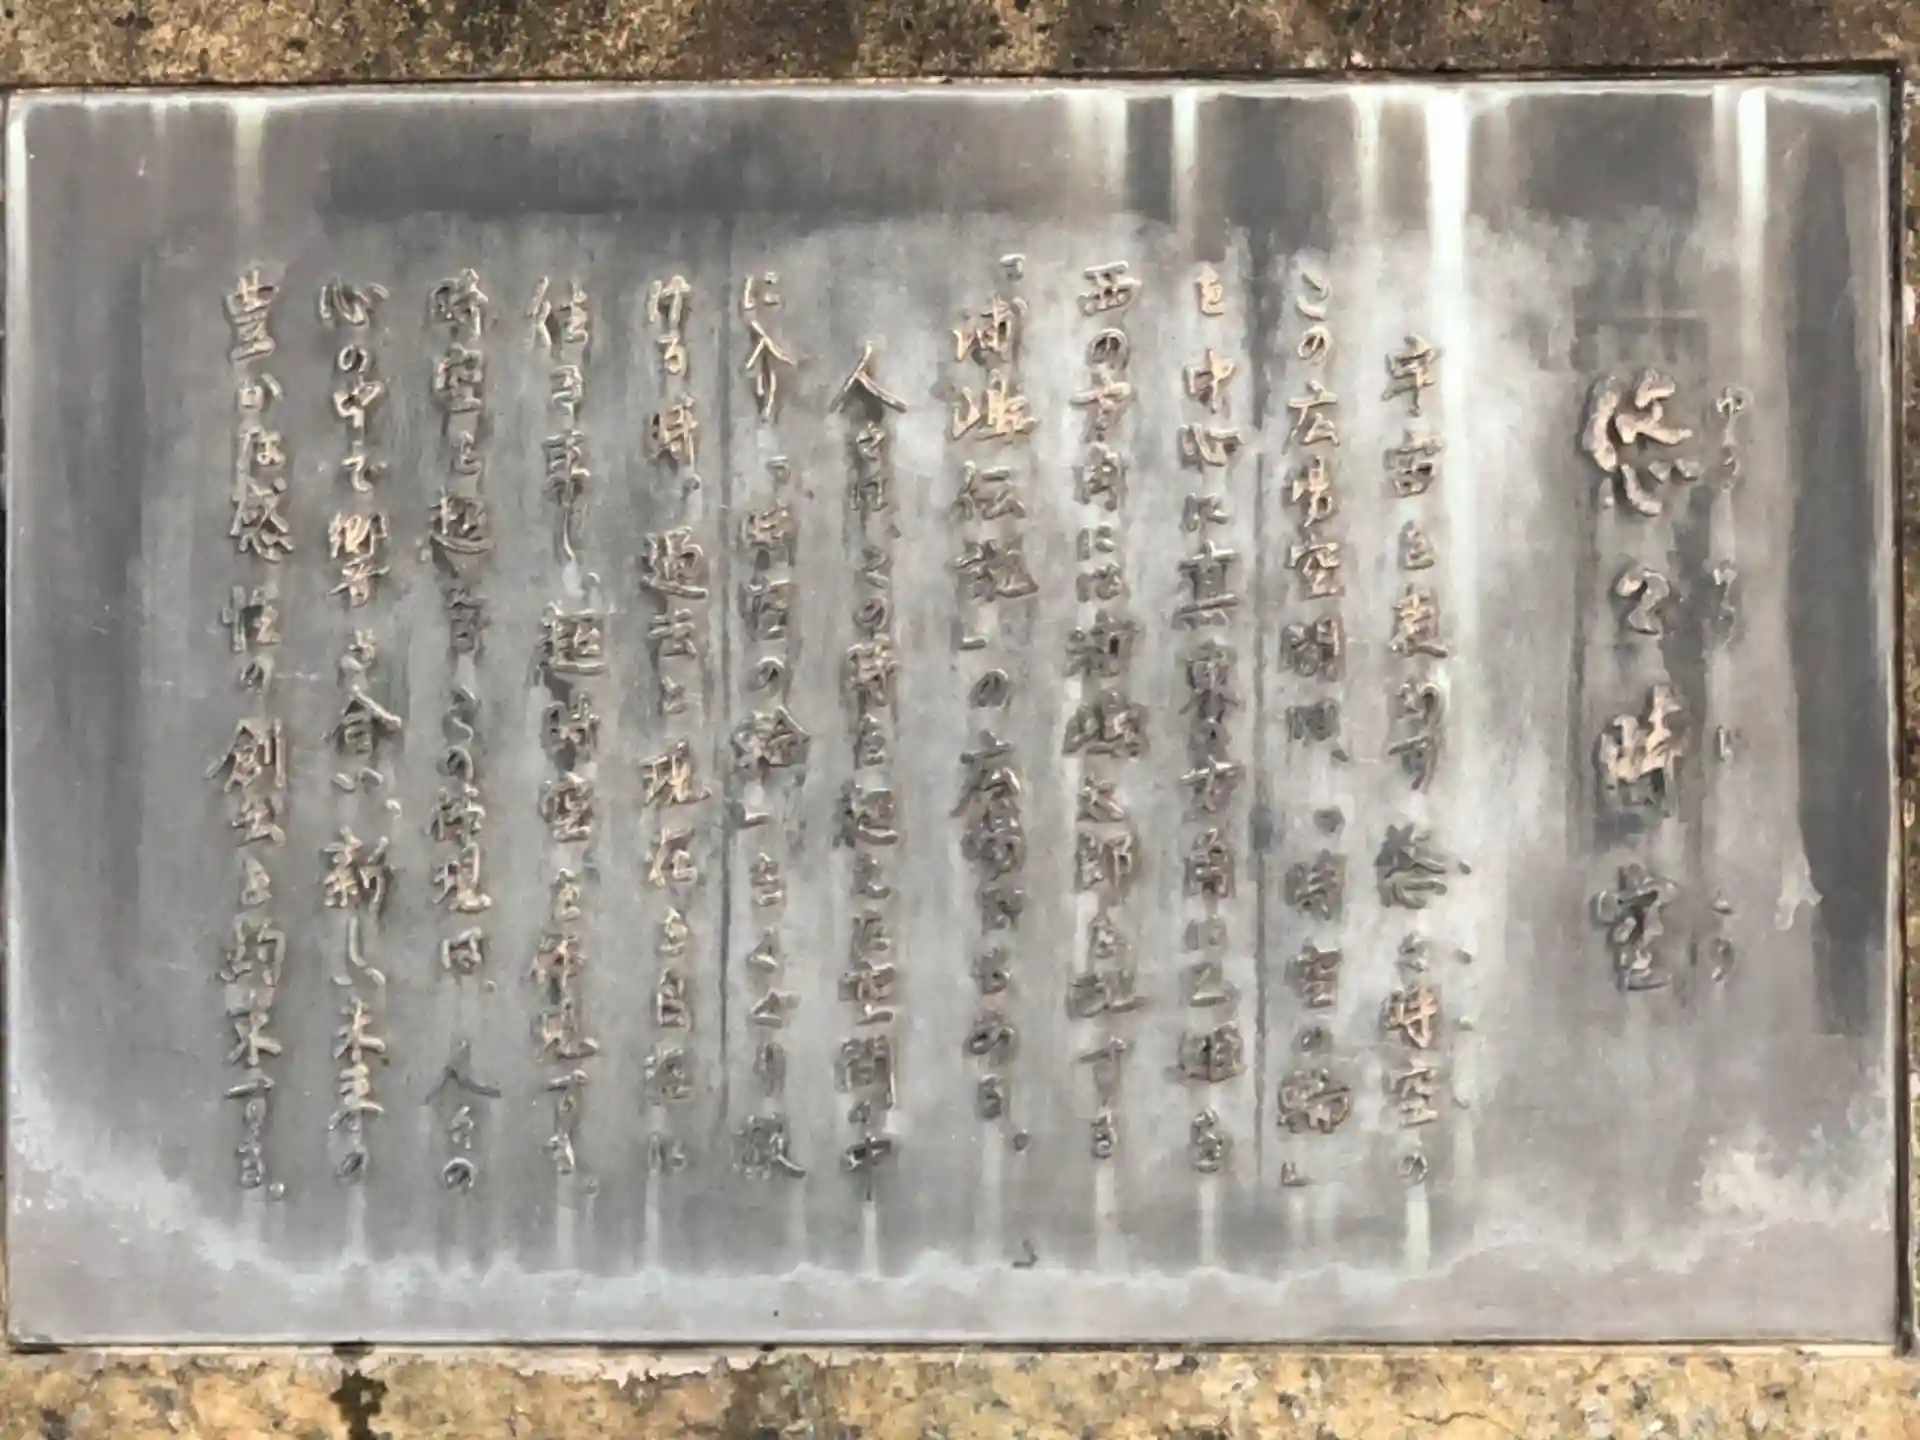 悠久時空
ゆうきゅうじくう
宇宙を表わす 悠久時空の
この広場空間は、「時空の輪」
を中心に真東の方角に乙姫を
西の方角には浦嶋太郎を配する
「浦嶋伝説」の広場でもある。
人々は、この時を超えた空間の中
に入り「時空の輪」をくぐり散
ける時、過去と現在を自在に
往き来し、超時空を体現する。
時空を超えるこの体現は、人々の
心の中で響き合い、新しい未来の
豊かな感性の創生を約束する。